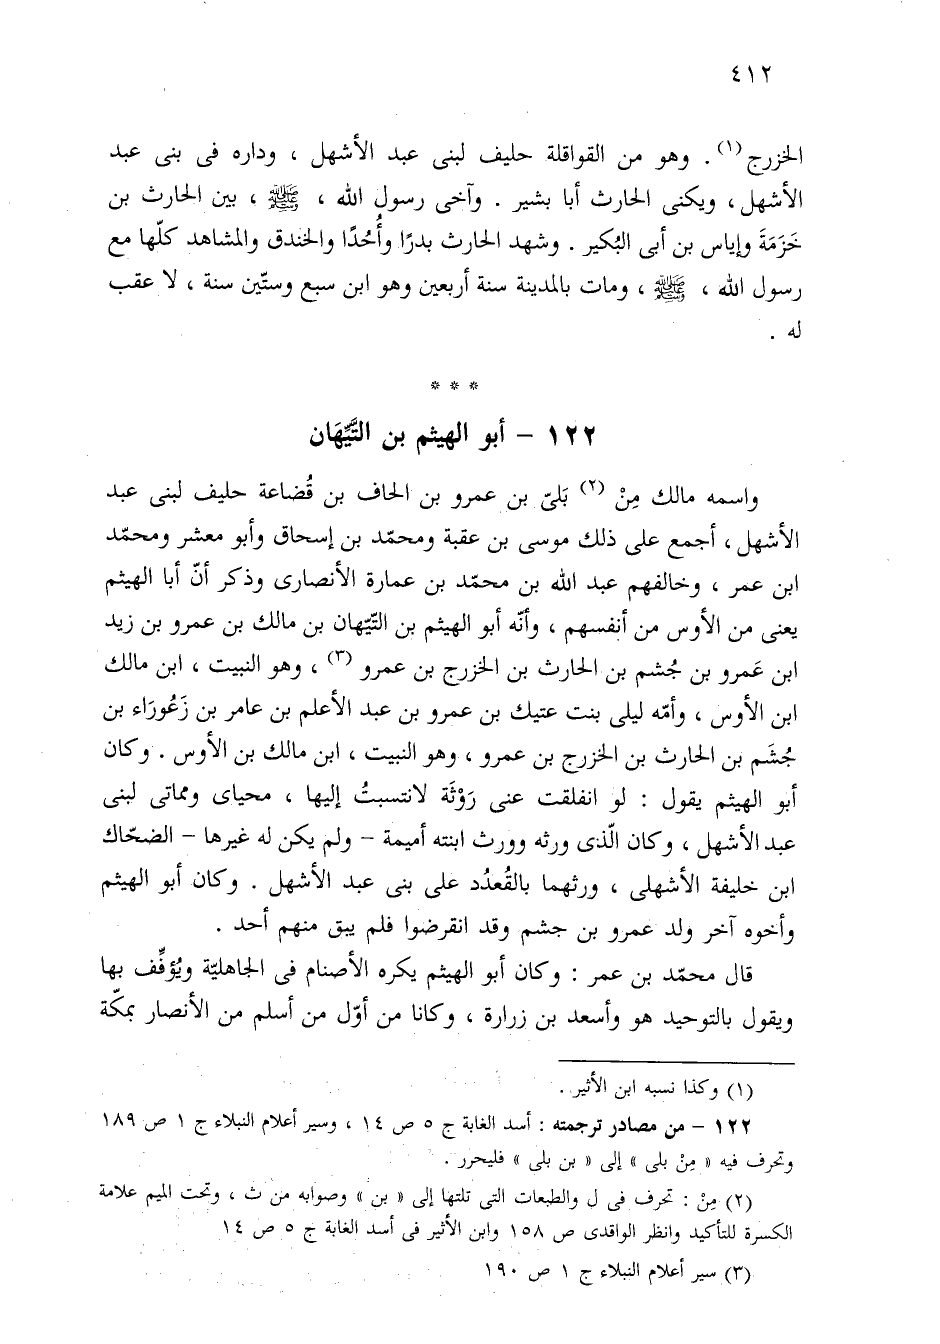 ٤١٢
الخزرج (١) . وهو من القواقلة حليف لبنى عبد الأشهل ، وداره فى بنى عبد
الأشهل ، ويكنى الحارث أبا بشير . وآخى رسول الله ، ﷺ ، بين الحارث بن
خَزَمَةَ وإياس بن أبى البُكير . وشهد الحارث بدرًا وأُحُدًا والخندق والمشاهد كلّها مع
رسول الله ، ﷺ ، ومات بالمدينة سنة أربعين وهو ابن سبع وستّين سنة ، لا عقب
له .
* * *
١٢٢ - أبو الهيثم بن التَّيِّهَان
واسمه مالك مِنْ (٢) بَلىّ بن عمرو بن الحاف بن قُضاعة حليف لبنى عبد
الأشهل ، أجمع على ذلك موسى بن عقبة ومحمّد بن إسحاق وأبو معشر ومحمّد
ابن عمر ، وخالفهم عبد الله بن محمّد بن عمارة الأنصارى وذكر أنّ أبا الهيثم
يعنى من الأوس من أنفسهم ، وأنّه أبو الهيثم بن التّيّهان بن مالك بن عمرو بن زيد
ابن عَمرو بن جُشم بن الحارث بن الخزرج بن عمرو (٣) ، وهو النبيت ، ابن مالك
ابن الأوس ، وأمّه ليلى بنت عتيك بن عمرو بن عبد الأعلم بن عامر بن زَعُورَاء بن
جُشَم بن الحارث بن الخزرج بن عمرو ، وهو النبيت ، ابن مالك بن الأوس . وكان
أبو الهيثم يقول : لو انفلقت عنى رَوْثَة لانتسبتُ إليها ، محياى ومماتى لبنى
عبد الأشهل ، وكان الّذى ورثه وورث ابنته أميمة - ولم يكن له غيرها - الضحّاك
ابن خليفة الأشهلى ، ورثهما بالقُعدُد على بنى عبد الأشهل . وكان أبو الهيثم
وأخوه آخر ولد عمرو بن جشم وقد انقرضوا فلم يبق منهم أحد .
قال محمّد بن عمر : وكان أبو الهيثم يكره الأصنام فى الجاهليّة ويُؤفِّف بها
ويقول بالتوحيد هو وأسعد بن زرارة ، وكانا من أوّل من أسلم من الأنصار بمكّة
(١) وكذا نسبه ابن الأثير .
١٢٢ - من مصادر ترجمته : أسد الغابة ج ٥ ص ١٤ ، وسير أعلام النبلاء ج ١ ص ١٨٩
وتحرف فيه « مِنْ بلى » إلى « بن بلى » فليحرر .
(٢) مِنْ : تحرف فى ل والطبعات التى تلتها إلى « بن » وصوابه من ث ، وتحت الميم علامة
الكسرة للتأكيد وانظر الواقدى ص ١٥٨ وابن الأثير فى أسد الغابة ج ٥ ص ١٤
(٣) سير أعلام النبلاء ج ١ ص ١٩٠